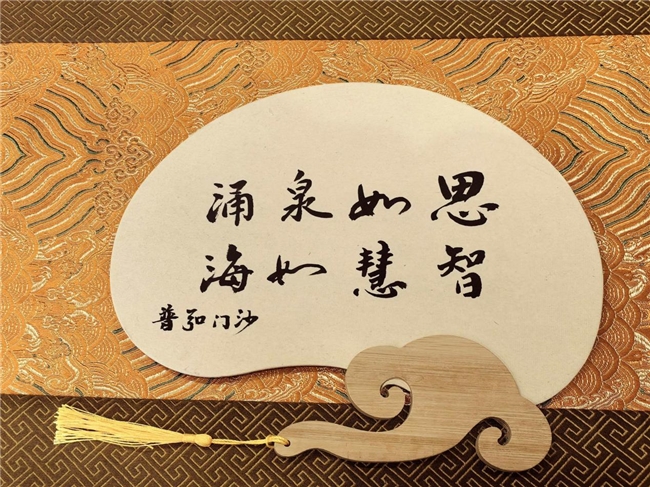 思如泉涌
智慧如海
沙门弘普